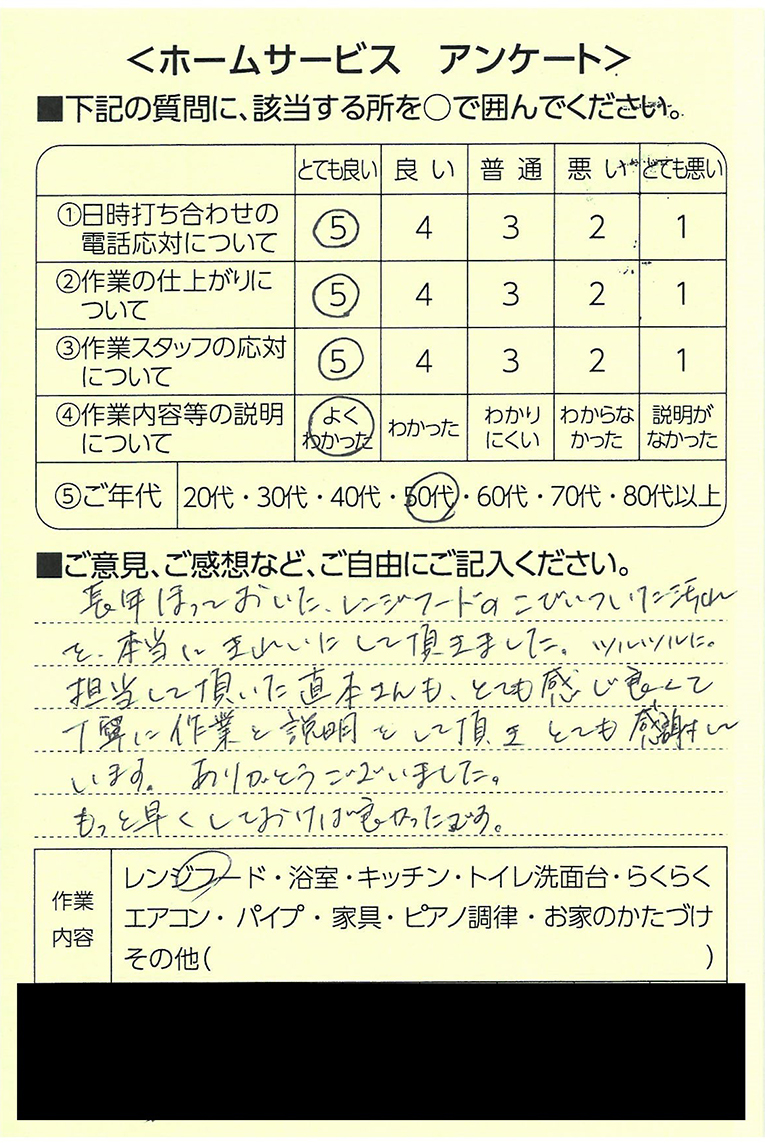 ＜ホームサービス　アンケート＞
■下記の質問に、該当する所を○で囲んでください。
とても良い　良い　普通　悪い　とても悪い
①日時打ち合わせの
電話応対について　5　4　3　2　1
②作業の仕上がりに
ついて　5　4　3　2　1
③作業スタッフの応対
について　5　4　3　2　1
④作業内容等の説明
について　よくわかった　わかった　わかりにくい　わからなかった　説明がなかった
⑤ご年代　20代・30代・40代・50代・60代・70代・80代以上
■ご意見、ご感想など、ご自由にご記入ください。
長年ほっておいた、レンジフードのこびいついた汚れ
を、本当にきれいにして頂きました。ツルツルに。
担当して頂いた直本さんも、とても感じ良くて
丁寧に作業と説明をして頂き とても感謝して
います。ありがとうございました。
もっと早くしておけば良かったです。
作業
内容
レンジフード・浴室・キッチン・トイレ洗面台・らくらく
エアコン・パイプ・家具・ピアノ調律・お家のかたづけ
その他(　　　)